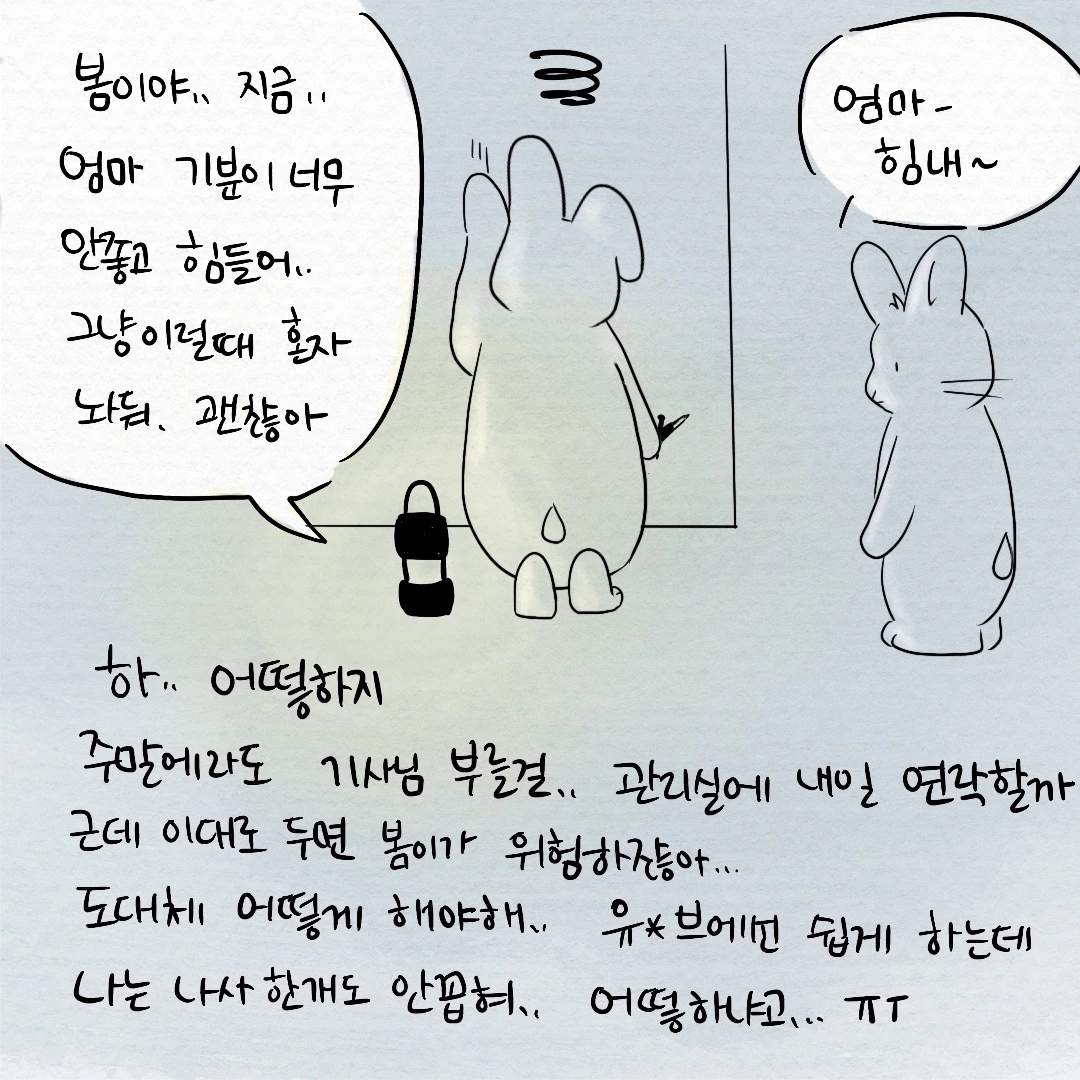 봄이야.. 지금..
엄마 기분이 너무
안좋고 힘들어..
그냥 이럴때 혼자
놔둬. 괜찮아
엄마-
힘내~
하.. 어떻하지
주말에라도 기사님 부를걸.. 관리실에 내일 연락할까
근데 이대로 두면 봄이가 위험하잖아...
도대체 어떻게 해야해.. 유*브에선 쉽게 하는데
나는 나사 한개도 안꼽혀.. 어떻하냐고... ㅠㅜ